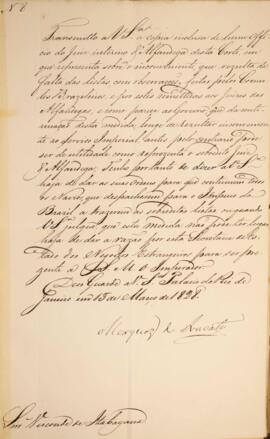 Nº 8
Transmitto a V. S.ª a copia inclusa de hum Offi-
cio do Juiz interino d'Alfandega desta Corte, em
que representa sobre o inconveniente, que resulta da
falta das listas com observaçoens, feitas pelos Consu-
les Brazileiros, e por estes remettidas aos Juizes das
Alfandegas, e como parece ao Governo que da conti-
nuação desta medida, longe de resultar inconveniente
ao Serviço Imperial antes pelo contrario pode
ser de utilidade como representa o sobredito Juiz
d'Alfandega: Tenho por tanto de dizer a V. S.ª
haja de dar as suas ordens para que continuem
os Navios, que despacharem para o Imperio do
Brasil a trazerem as sobreditas listas, e quando
V. S.ª julgue que esta medida não pode ter lugar
haja de dar a razão por esta Secretaria de Es-
tado dos Negocios Estrangeiros para ser pre-
zente a S. M. O Imperador.
Deos Guarde a V. S.ª Palacio do Rio de
Janeiro em 15 de Março de 1828.
Marquez de Aracaty
Snr. Visconde de Itabayana